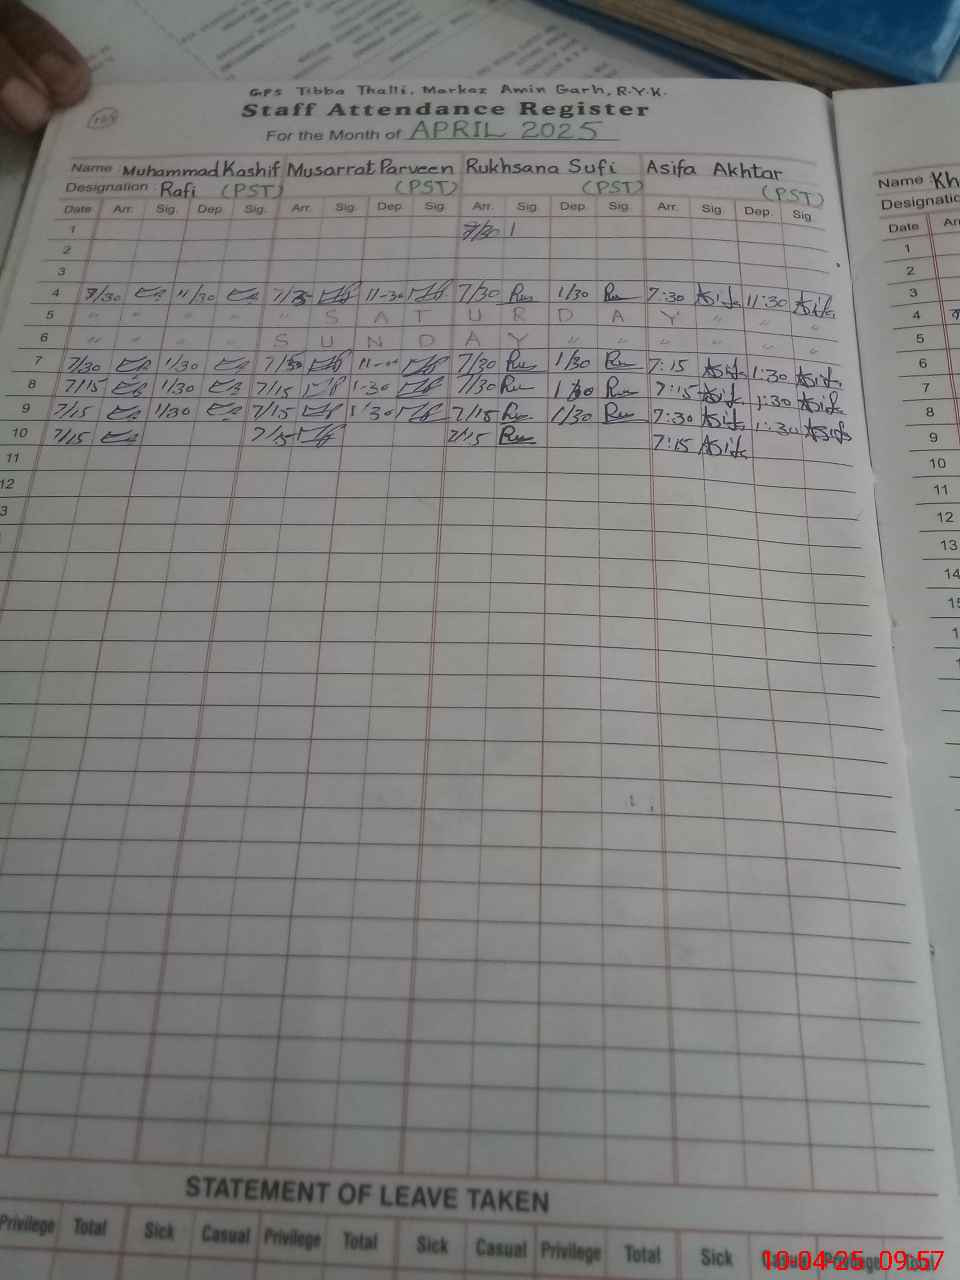 GPS Tibba Thalli, Markaz Amin Garh, R.Y.K.
Staff Attendance Register
For the Month of APRIL 2025
Name Muhammad Kashif Musarrat Parveen Rukhsana Sufi Asifa Akhtar
Designation : Rafi (PST) (PST) (PST) (PST)
Date Arr. Sig. Dep. Sig. Arr. Sig. Dep. Sig. Arr. Sig. Dep. Sig. Arr. Sig. Dep. Sig.
1 7/30
2
3
4 7/30 11/30 11-30 7/30 1/30 7:30 Asifa 11:30 Asifa
5 " " " " " S A T U R D A Y " " "
6 " " " " S U N D A Y " " " " " "
7 7/30 1/30 7/30 7/30 1/30 7:15 Asifa 1:30 Asifa
8 7/15 1/30 7/15 1-30 7/30 1/30 7:15 Asifa 1:30 Asifa
9 7/15 1/30 7/15 1/30 7/15 1/30 7:30 Asifa 1:30 Asifa
10 7/15 7/15 7/15 7:15 Asifa
11
12
3
STATEMENT OF LEAVE TAKEN
Privilege Total Sick Casual Privilege Total Sick Casual Privilege Total Sick Casual Privilege Total
Name Kh
Designatio
Date Arr
1
2
3
4
5
6
7
8
9
10
11
12
13
14
10-04-25, 09:57